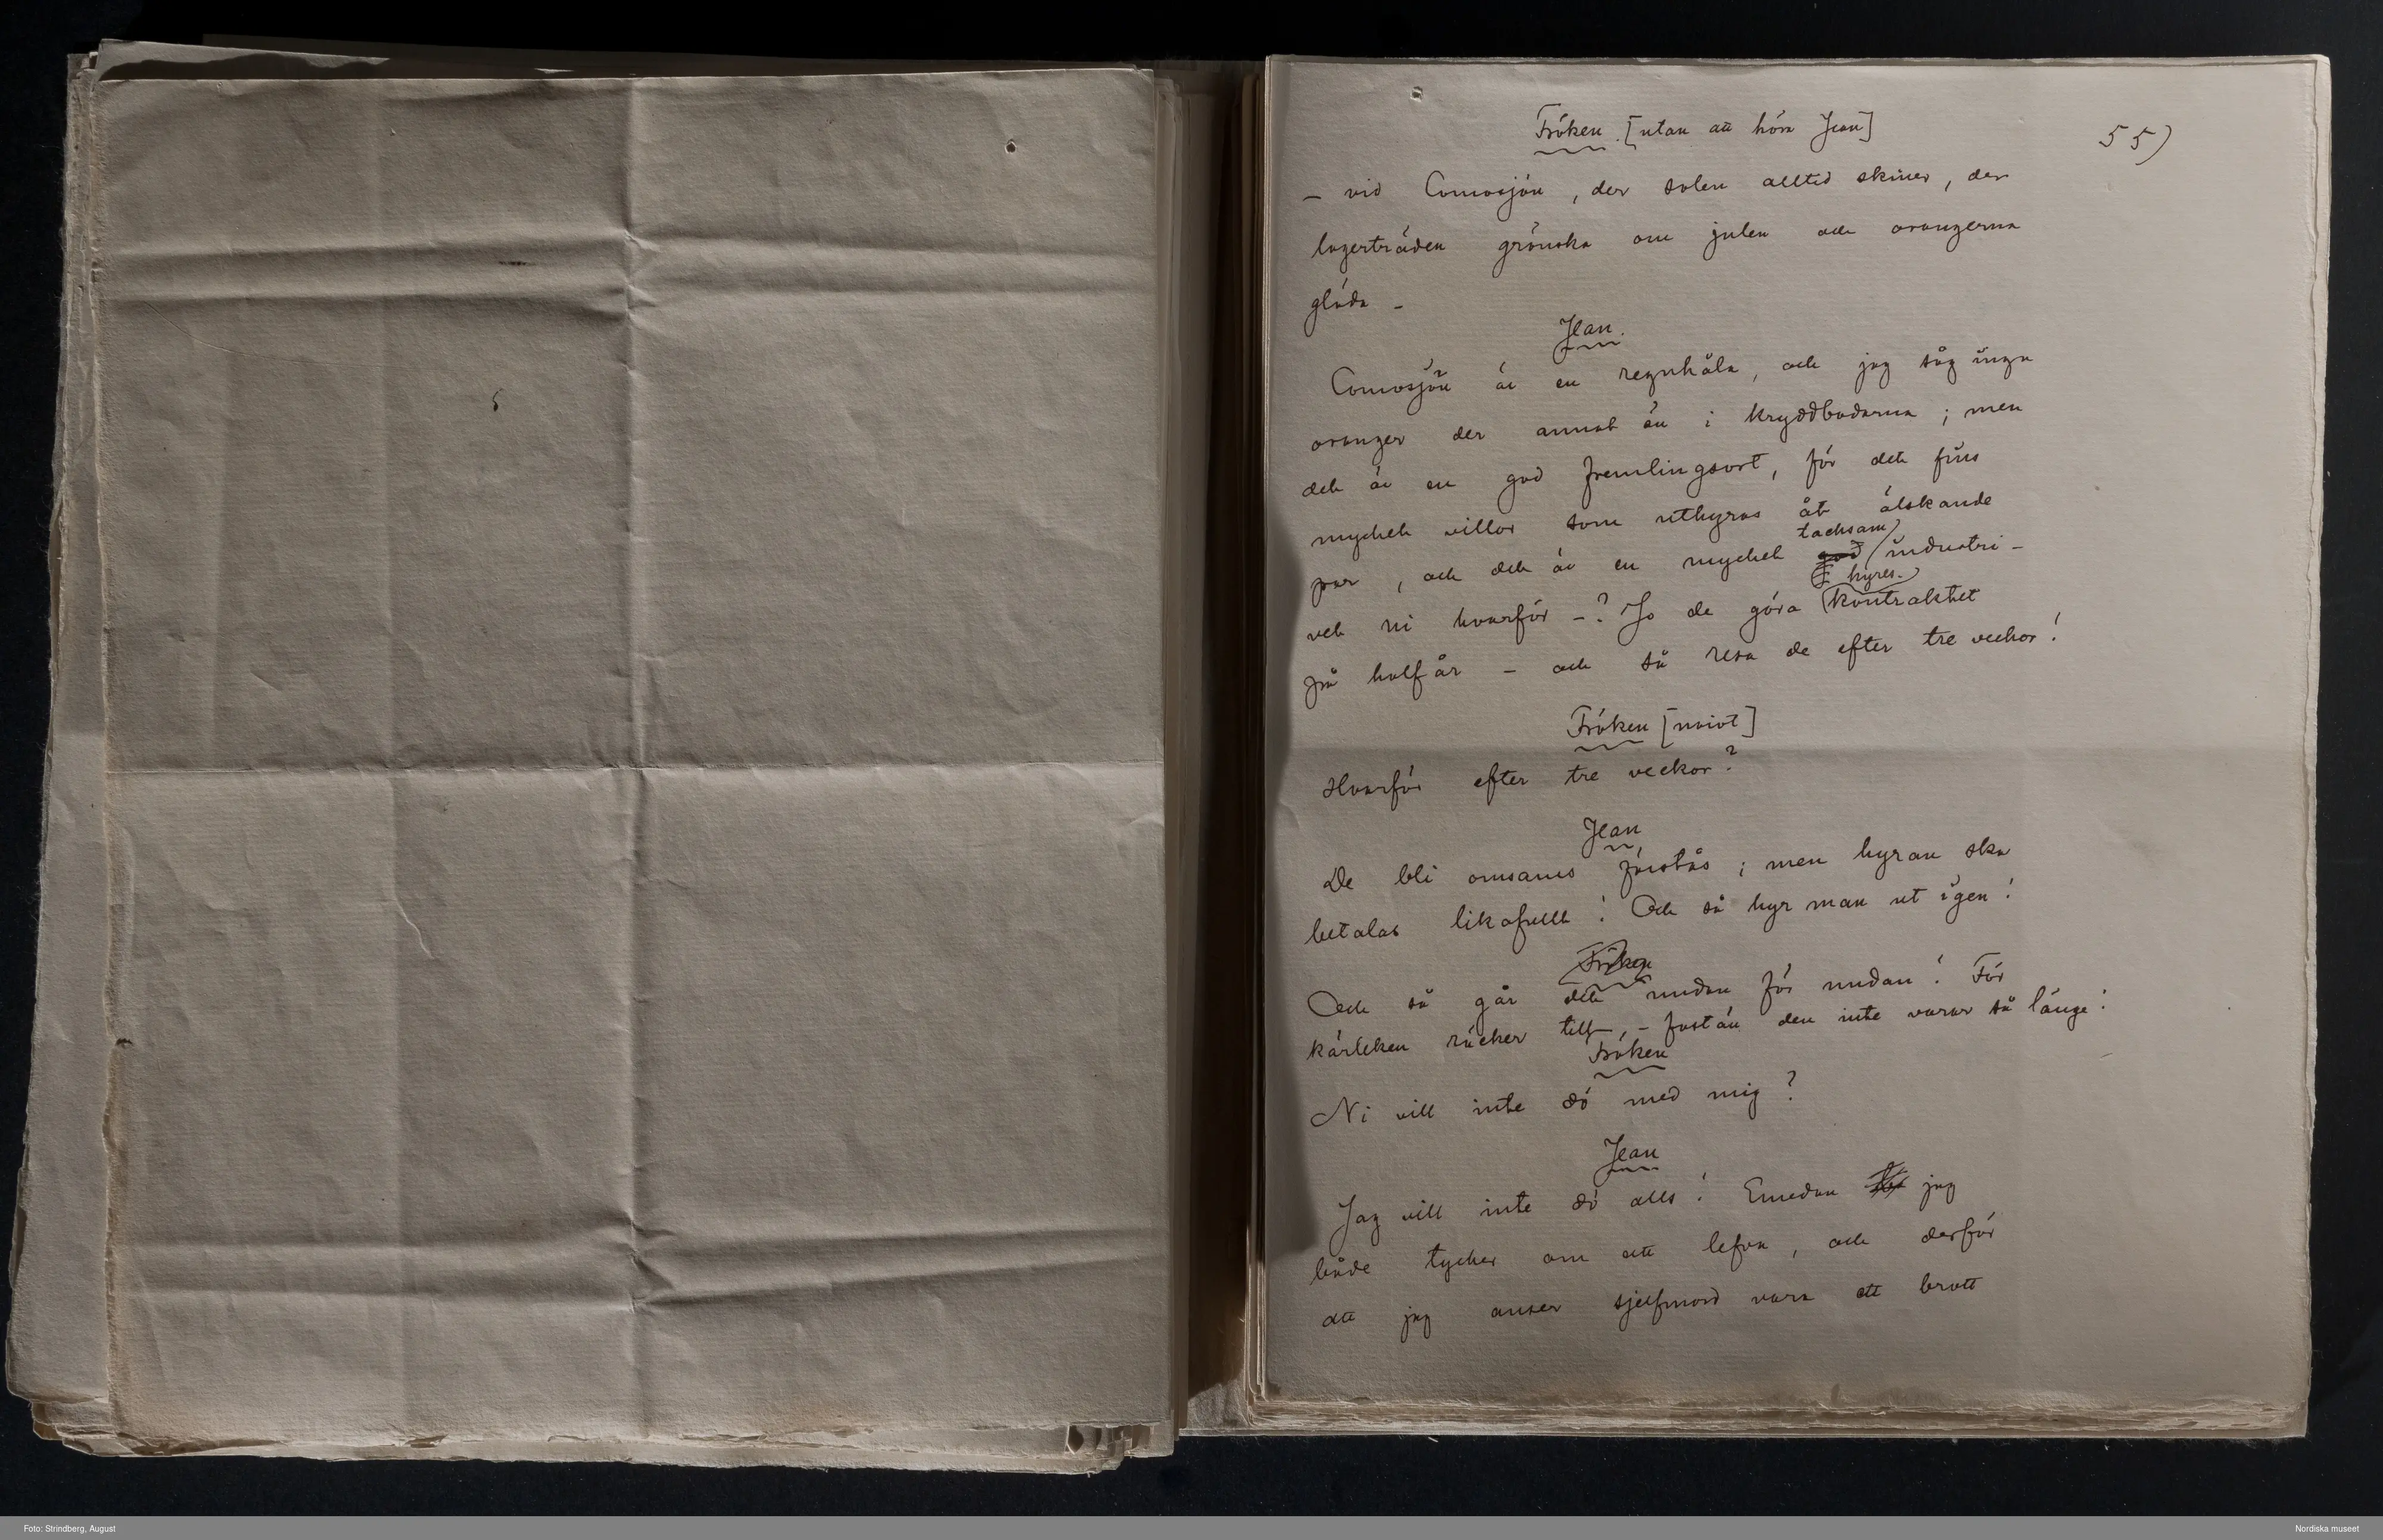 Fröken. [utan att höra Jean]
55)
– vid Comosjön, der solen alltid skiner, der
lagerträden grönska om julen och orangerna
glöda –
Jean.
Comosjön är en regnhåla, och jag såg inga
oranger der annat än i kryddbodarna; men
det är en god fremlingsort, för det fins
mycket villor som uthyras åt älskande
tacksam
par, och det är en mycket god industri –
hyres-
vet ni hvarför –? Jo de göra kontraktet
på halfår – och så resa de efter tre veckor!
Fröken [naivt]
Hvarför efter tre veckor?
Jean
De bli omsams förstås; men hyran ska
betalas likafullt! Och så hyr man ut igen!
Fröken
Och så går det undan för undan! För
kärleken räcker till, – fastän den inte varar så länge!
Fröken
Ni vill inte dö med mig?
Jean
Jag vill inte dö alls! Emedan jag
både tycker om att lefva, och derför
att jag anser sjelfmord vara ett brott
Foto: Strindberg, August
Nordiska museet